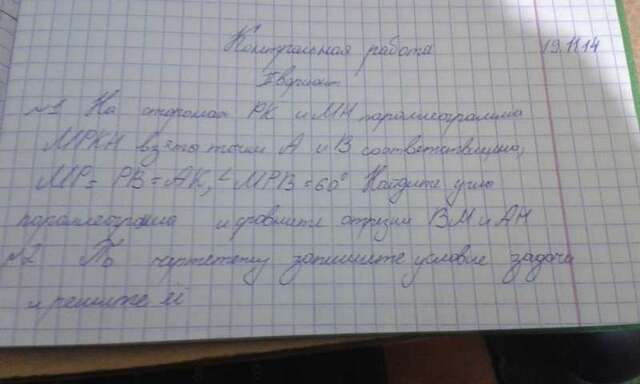 Контрольная работа 19.11.14
I вариант
№1 На сторонах PK и MH параллелограмма
MPKH взяты точки A и B соответственно,
MP = PB = AK, ∠MPB = 60° Найдите углы
параллелограмма и сравните отрезки BM и AH
№2 По чертежу запишите условие задачи
и решите её